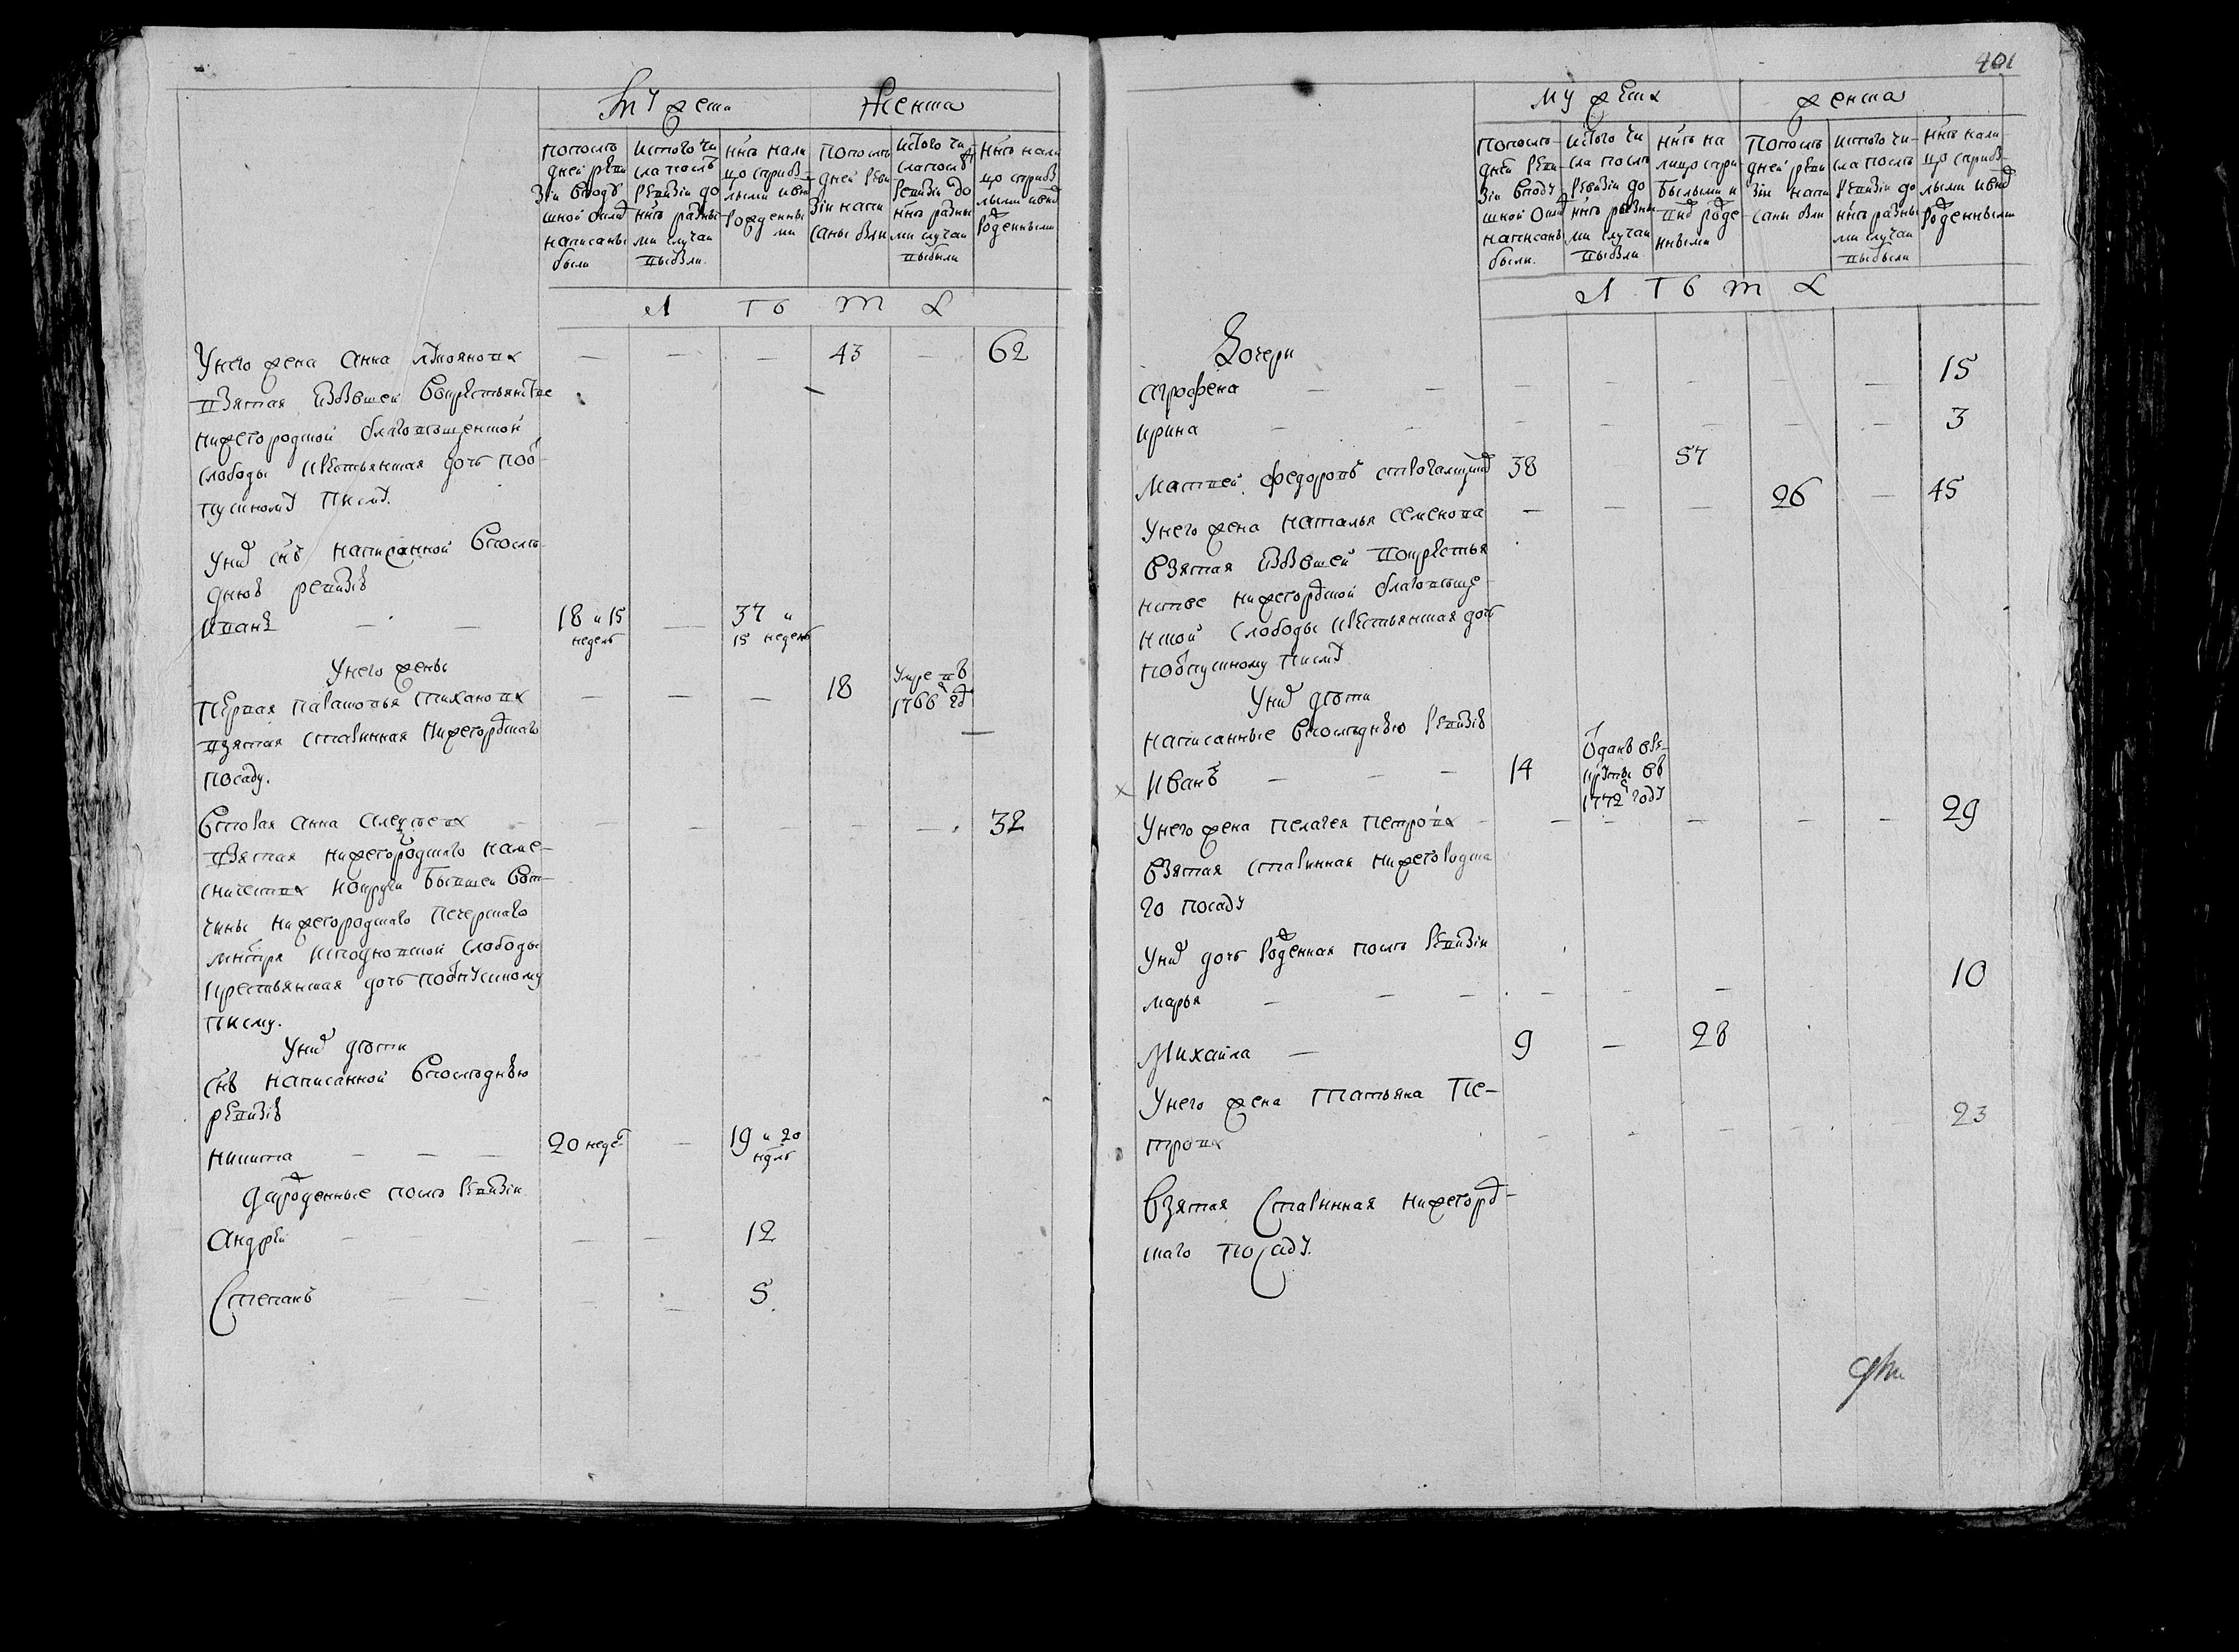 Мужеска
Женска
попосле
дней реви
зіи вподу
шной оклад
написаны
были
истого чи
сла после
ревизіи до
ннѣ разны
ми случаи
выбыли.
ннѣ нали
цо с прибы
лыми и вно
рожденны
ми
попосле
дней реви
зіи напи
саны были
истого чи
сла после
ревизіи до
ннѣ разны
ми случаи
выбыли
ннѣ нали
цо с прибы
лыми и внов
рожденными
Л Т Б Т А
У него жена Анна — — — 43 — 62
взятая из бывшей в окрестьянстве
нижегородской благовещенской
слободы крестьянская дочь по от
пускному писму.
У них снъ написанной в послѣ
днюю ревизію
Иванъ — — 18 и 15 недель — 37 и 15 недель
У него жены
первая Парасковья Стиханова — — — 18 умре в 1766 год
взятая старинная нижегородскаго —
посаду.
вторая Анна Алексеева — — — — — — 32
взятая нижегородскаго наме-
сничества изокруги бывшей вот-
чины нижегородскаго печерскаго
мнстря исподновской слободы
крестьянская дочь по отпускному
писму.
У них дети
снъ написанной в последнюю
ревизію
Никита — — — 20 недель — 19 и 20 ндль
да рожденные после ревизіи
Андрей — — — — 12
Степанъ — — — — 5.
401
Мужеска
женска
попосле-
дней реви-
зіи вподу
шной оклад
написаны
были.
истого чи
сла после
ревизіи до
ннѣ разны
ми случаи
выбыли
ннѣ на
лицо с при
былыми и
внов рожде
нными
попосле
дней реви
зіи напи
саны были
истого чи-
сла после
ревизіи до
ннѣ разны
ми случаи
выбыли
ннѣ нали
цо с прибы-
лыми и внов
рожденными
Л Т Б Т А
Дочери
Аграфена — — — — — — — 15
Ирина — — — — — — — 3
Матвей Федоровъ 38 57
У него жена Наталья Семенова — — — 26 — 45
взятая из бывшей в окрестья
нстве нижегородской благовеще
нской слободы крестьянская дочь
по отпускному писму
У них дети
написанные в последнюю ревизію
Иванъ — — — 14 отданъ в рекруты въ 1772 году
У него жена Пелагея Петрова — — — — — — 29
взятая старинная нижегородска
го посаду
У них дочь рожденная после ревизіи
Марья — — — — — — 10
Михайла — 9 — 28
У него жена Татьяна Пе-
трова — — — — — 23
взятая старинная нижегород-
скаго посаду.